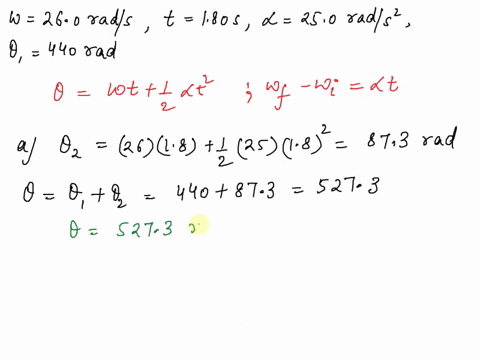 w = 26.0 rad/s , t = 1.80 s , α = 25.0 rad/s² ,
θ₁ = 440 rad
θ = wt + 1/2 αt² ; w_f - w_i = αt
a/ θ₂ = (26)(1.8) + 1/2 (25)(1.8)² = 87.3 rad
θ = θ₁ + θ₂ = 440 + 87.3 = 527.3
θ = 527.3